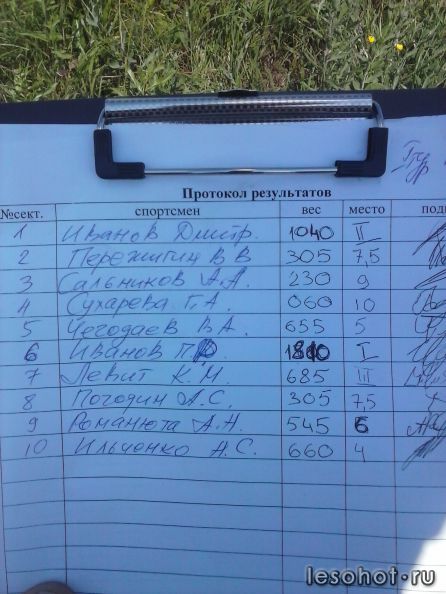 Протокол результатов
№сект. спортсмен вес место
1 Иванов Дмитр. 1040 II
2 Пережигин В В 305 7,5
3 Сальников А.А. 230 9
4 Сухарева Г.А. 060 10
5 Чегодаев В А. 655 5
6 Иванов I
7 Левит К.М. 685 III
8 Погодин А.С. 305 7,5
9 Романюта А.Н. 545 6
10 Ильченко А.С. 660 4
lesohot.ru